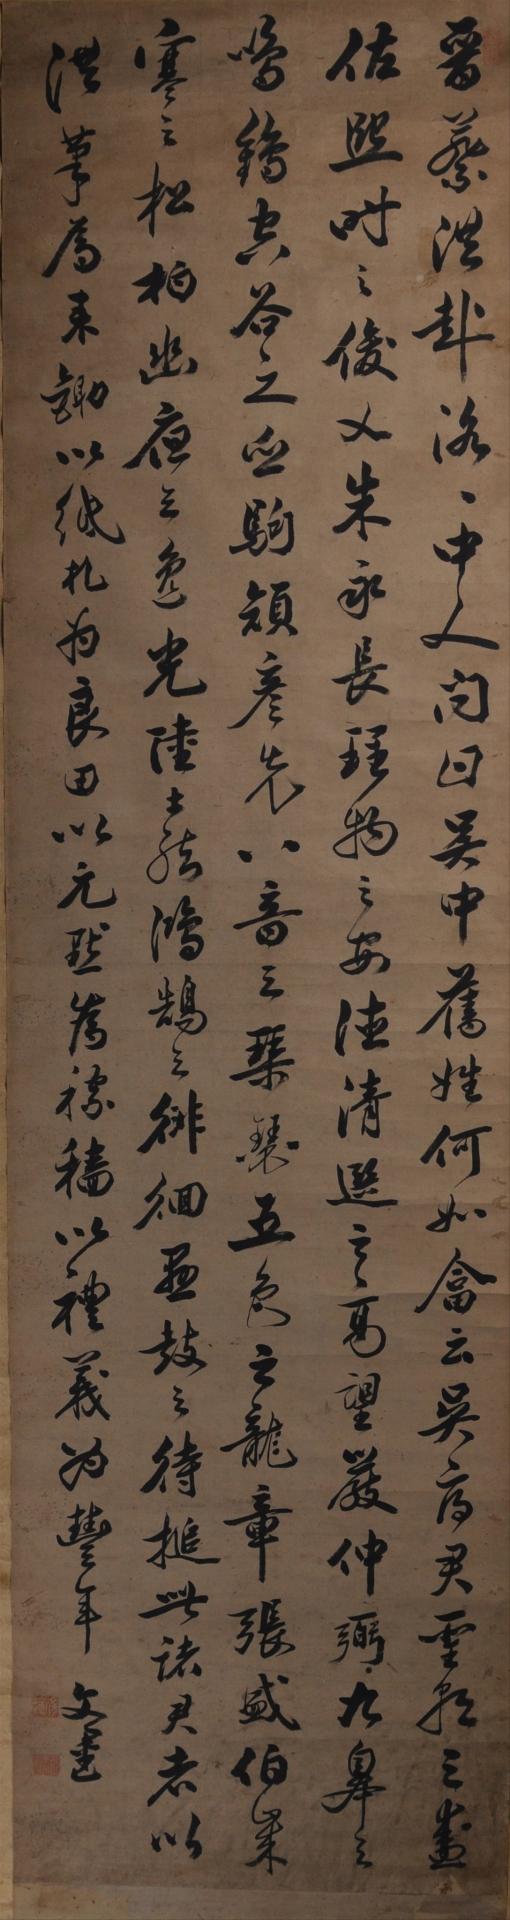 晉蔡洪赴洛、中人問曰吳中舊姓何如畣云吳府君聖朝之盛
佐熙時之俊乂朱永長理物之德清選之高望嚴仲弼九皋之
鳴鶴空谷之白駒顧彥先八音之琴瑟五色之龍章張威伯歲
寒之松柏幽夜之逸光陸士龍鴻鵠之徘徊懸鼓之待搥此諸君者以
洪筆為耒鋤以紙札為良田以元默為稼穡以禮義為豐年 文書